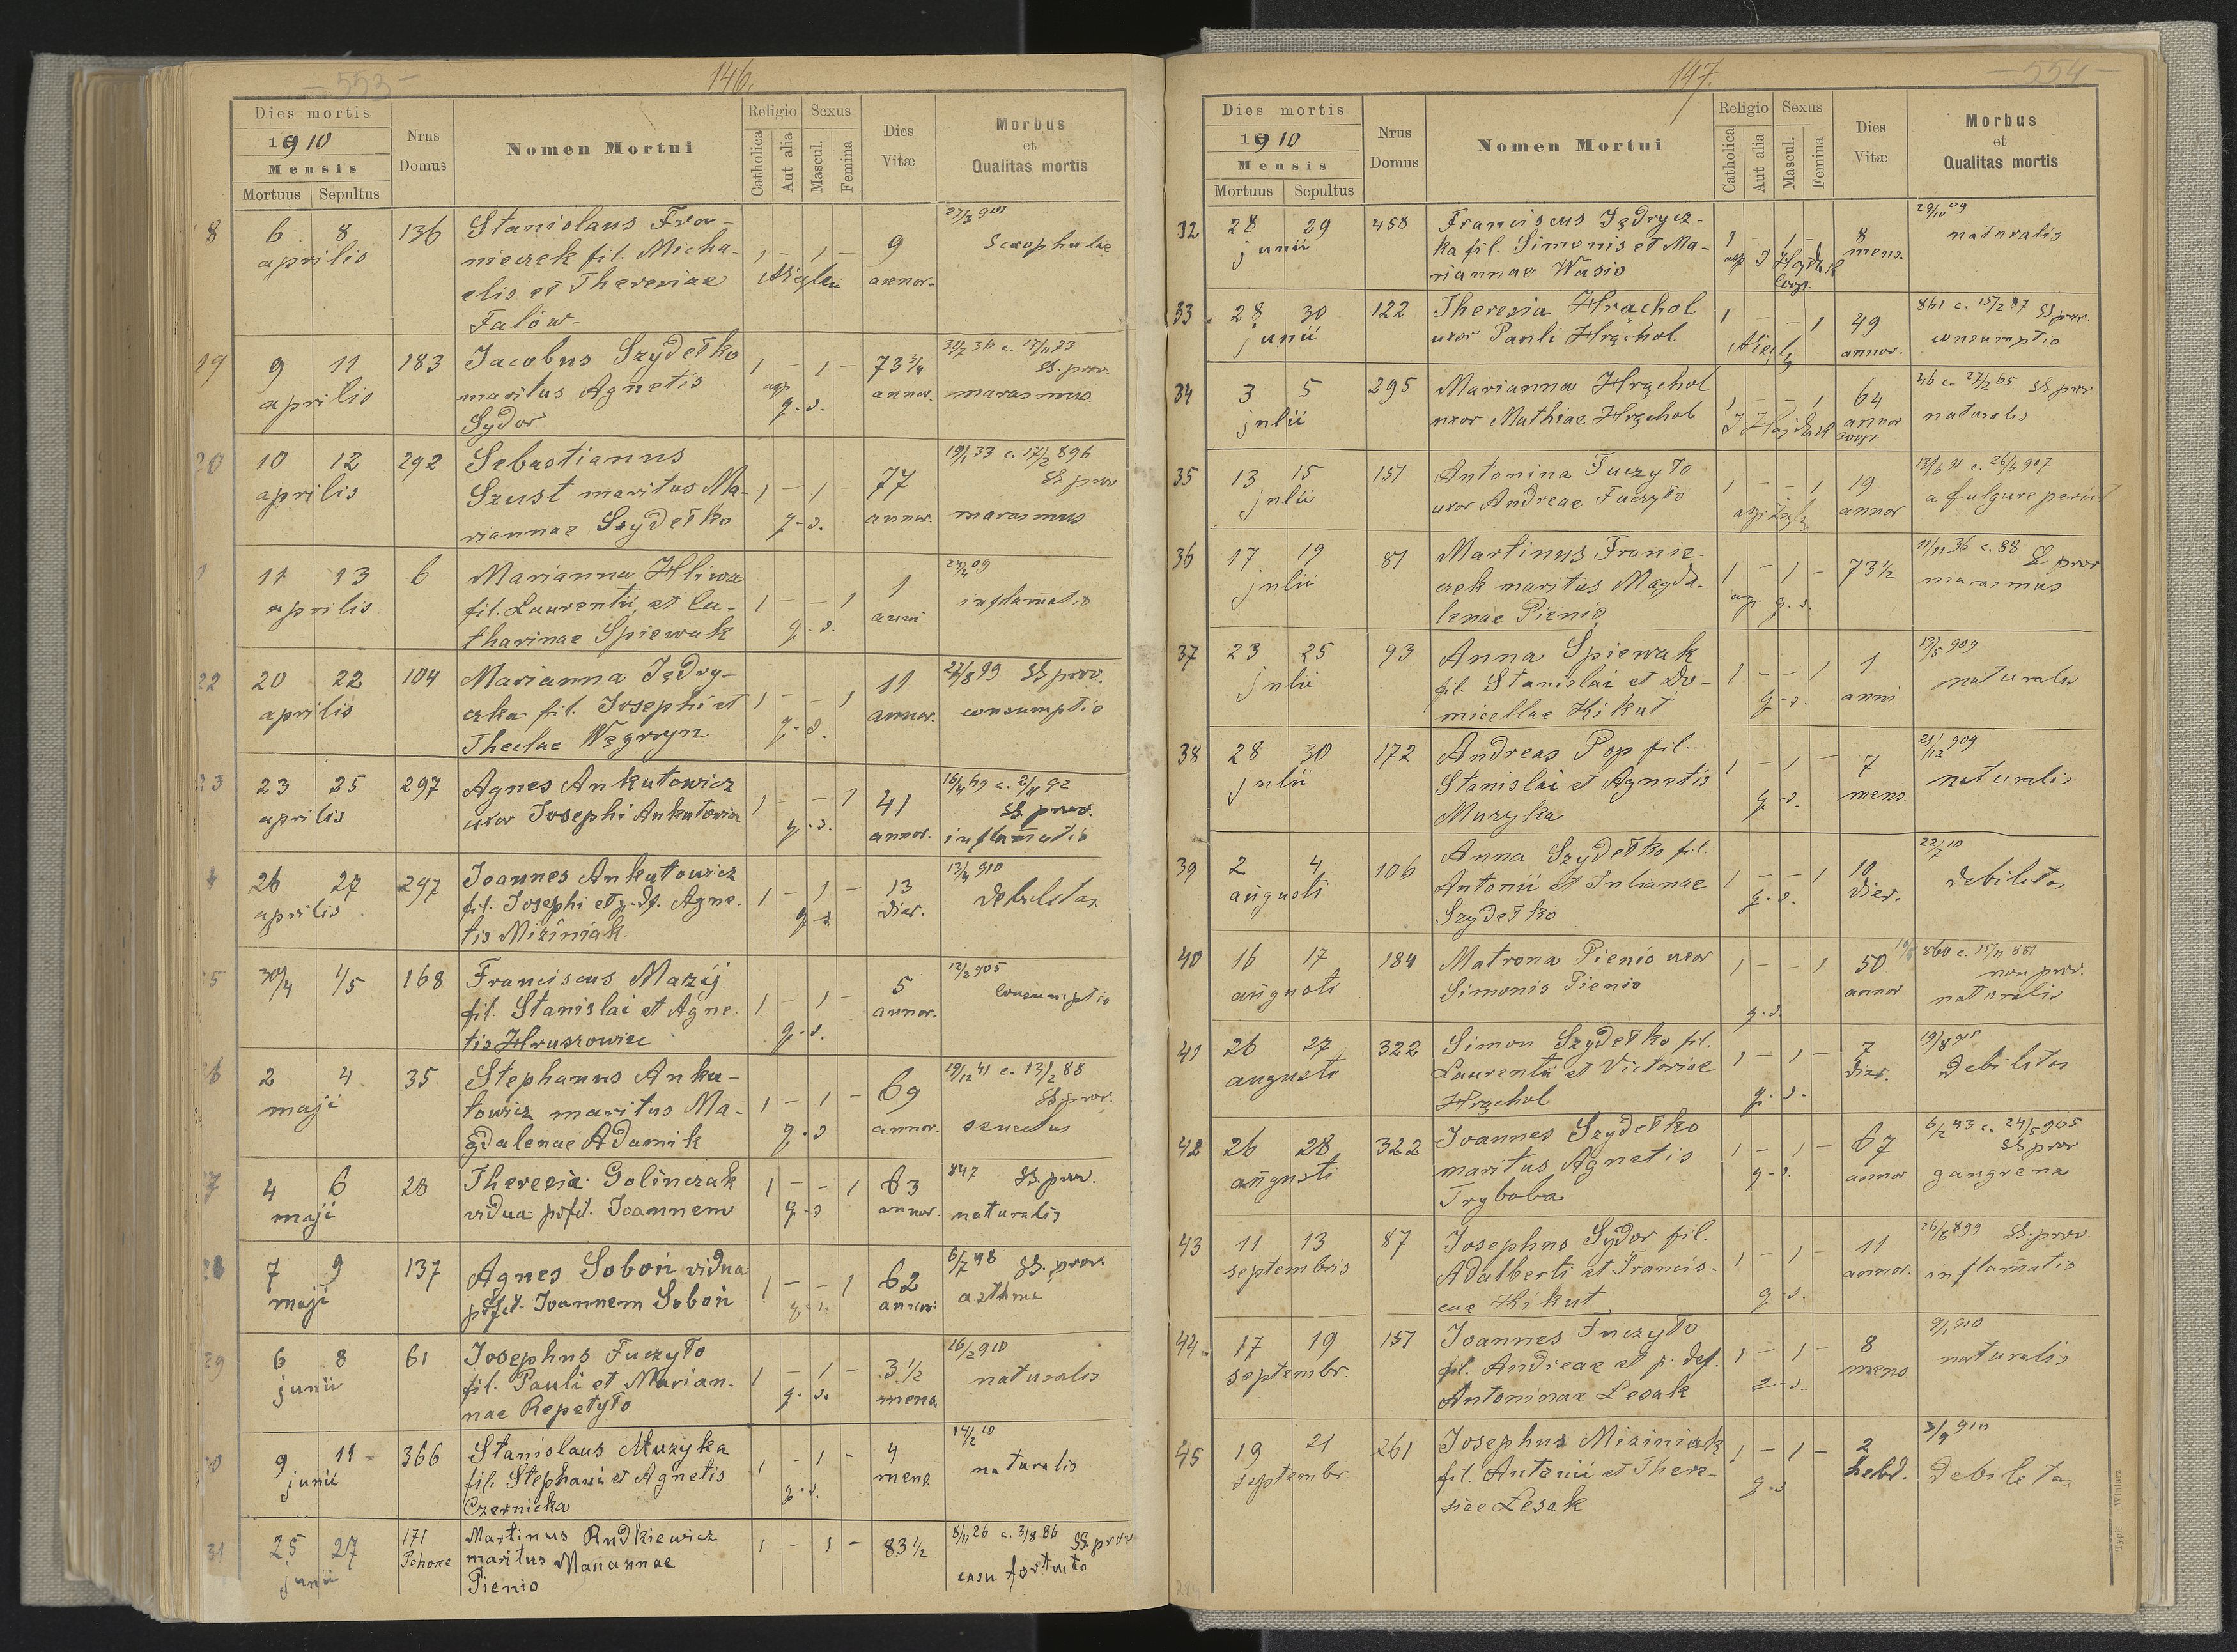 - 553 -
146.
Dies mortis
1910
Mensis
Mortuus Sepultus
Nrus
Domus
Nomen Mortui
Religio
Catholica
Aut alia
Sexus
Mascul.
Femina
Dies
Vitæ
Morbus
et
Qualitas mortis
8 6 8 136 Stanislaus Fron-
aprilis nieczek fil. Micha-
elis et Theresiae
Falów
1 - 1 - 9
annor.
27/3 901
Scrophulae
19 9 11 183 Jacobus Szydełko
aprilis maritus Agnetis
Sydor
1 - 1 - 73 3/4
q. s. annor.
SS. prov.
marasmus
20 10 12 292 Sebastianus
aprilis Szust maritus Ma-
riannae Szydełko
1 - 1 - 77
q. s. annor.
19/1 33 c. 17/2 896
SS prov
marasmus
11 13 6 Marianna Hliwa
aprilis fil. Laurentii et Ca-
tharinae Spiewak
1 - - 1 1
q. s. anni
09
inflamatio
22 20 22 104 Marianna Jędry-
aprilis czka fil. Josephi et
Theclae Węgrzyn
1 - 1 11
q. s. annor.
27/8 99 SS prov.
consumptio
23 23 25 297 Agnes Ankutowicz
aprilis uxor Josephi Ankutowicz
1 - - 1 41
q. s. annor.
16/4 69 c. 21/11 92
SS prov.
inflamatio
4 26 27 297 Joannes Ankutowicz
aprilis fil. Josephi et p. df. Agne-
tis Miziniak
1 - 1 - 13
q. s. dier.
13/4 910
debilitas.
5 30/4 1/5 168 Franciscus Mazij
fil. Stanislai et Agne-
tis Hruszowiec
1 - 1 - 5
q. s. annor.
12/3 905
Consumptio
26 2 4 35 Stephanus Anku-
maji towicz maritus Ma-
gdalenae Adamik
1 - 1 - 69
q. s annor.
19/12 41 c. 13/2 88
SS prov.
27 4 6 28 Theresia Golinczak
maji vidua Joannem
1 - - 1 63
q. s annor.
847 SS. prov.
naturalis
28 7 9 137 Agnes Soboń vidua
maji Joannem Soboń
1 - - 1 62
annor.
6/7 48 SS. prov.
asthma
29 6 8 61 Josephus Fuczyło
junii fil. Pauli et Marian-
nae Repetyło
1 - 1 - 3 1/2
q. s. mens.
16/2 910
naturalis
30 9 11 366 Stanislaus Muzyka
junii fil. Stephani et Agnetis
Czernicka
1 - 1 - 4
q. s. mens.
14/2 10
naturalis
31 25 27 171 Martinus Rudkiewicz
junii maritus Mariannae
Pienio
1 - 1 - 83 1/2
8/11 26 c. 3/8 86 SS. prov
casu fortuito
147.
- 554 -
Dies mortis
1910
Mensis
Mortuus Sepultus
Nrus
Domus
Nomen Mortui
Religio
Catholica
Aut alia
Sexus
Mascul.
Femina
Dies
Vitæ
Morbus
et
Qualitas mortis
32 28 29 458 Franciscus Jędrycz-
junii ka fil. Simonis et Ma-
riannae Wasio
1 - 1 - 8
mens.
29/10 09
naturalis
33 28 30 122 Theresia Hrąchol
junii uxor Pauli Hrąchol
1 - - 1 49
annor.
861 c. 15/2 87 SS prov.
consumptio
34 3 5 295 Marianna Hrąchol
julii uxor Mathiae Hrąchol
1 - - 1 64
annor
46 c. 27/2 65 SS prov.
naturalis
35 13 15 151 Antonina Fuczyło
julii uxor Andreae Fuczyło
1 - - 1 19
annor
13/6 91 c. 26/6 907
a fulgure
36 17 19 81 Martinus Franie-
julii czek maritus Magda-
lenae Pienio
1 - 1 - 73 1/2
q. s.
11/11 36 c. 88 SS prov
marasmus
37 23 25 93 Anna Spiewak
julii fil. Stanislai et Do-
micellae Kikut
1 - - 1 1
q. s. anni
13/5 909
naturalis
38 28 30 172 Andreas Pop fil.
julii Stanislai et Agnetis
Muzyka
1 - 1 - 7
q. s. mens.
21/12 909
naturalis
39 2 4 106 Anna Szydełko fil.
augusti Antonii et Julianae
Szydełko
1 - - 1 10
q. s. dier.
22/7 10
debilitas
40 16 17 184 Matrona Pienio uxor
augusti Simonis Pienio
1 - - 1 50
q. s. annor
860 c. 15/11 881
non prov.
naturalis
41 26 27 322 Simon Szydełko fil.
augusti Laurentii et Victoriae
Hrąchol
1 - 1 - 7
q. s. dier.
19/8 910
debilitas
42 26 28 322 Joannes Szydełko
augusti maritus Agnetis
Tryboba
1 - 1 - 67
q. s. annor
6/2 43 c. 24/5 905
SS prov
gangrena
43 11 13 87 Josephus Sydor fil.
septembris Adalberti et Francis-
cae Kikut
1 - 1 - 11
q. s. annor.
26/6 899 SS. prov.
inflamatio
44 17 19 151 Joannes Fuczyło
septembr. fil. Andreae et p. def.
Antoninae Lesak
1 - 1 - 8
q. s. mens
9/1 910
naturalis
45 19 21 261 Josephus Miziniak
septembr. fil. Antonii et There-
siae Lesak
1 - 1 - 2
q. s hebd.
3/9 910
debilitas